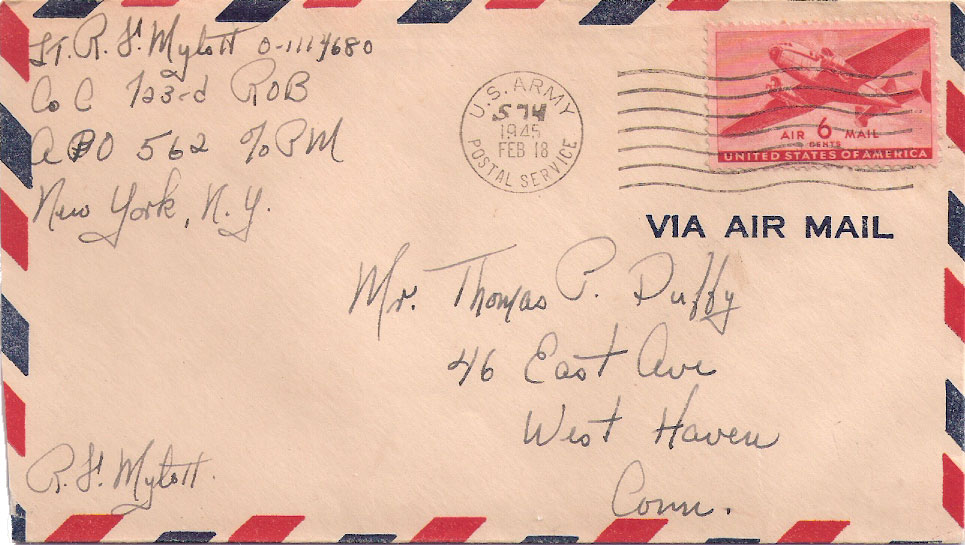 Lt. R. F. Mylott O-1114680
Co C 123rd ROB
APO 562 c/o PM
New York, N.Y.
U.S. ARMY
574
1945
FEB 18
POSTAL SERVICE
AIR 6 MAIL
CENTS
UNITED STATES OF AMERICA
VIA AIR MAIL
Mr. Thomas P. Duffy
46 East Ave
West Haven
Conn.
R. F. Mylott.